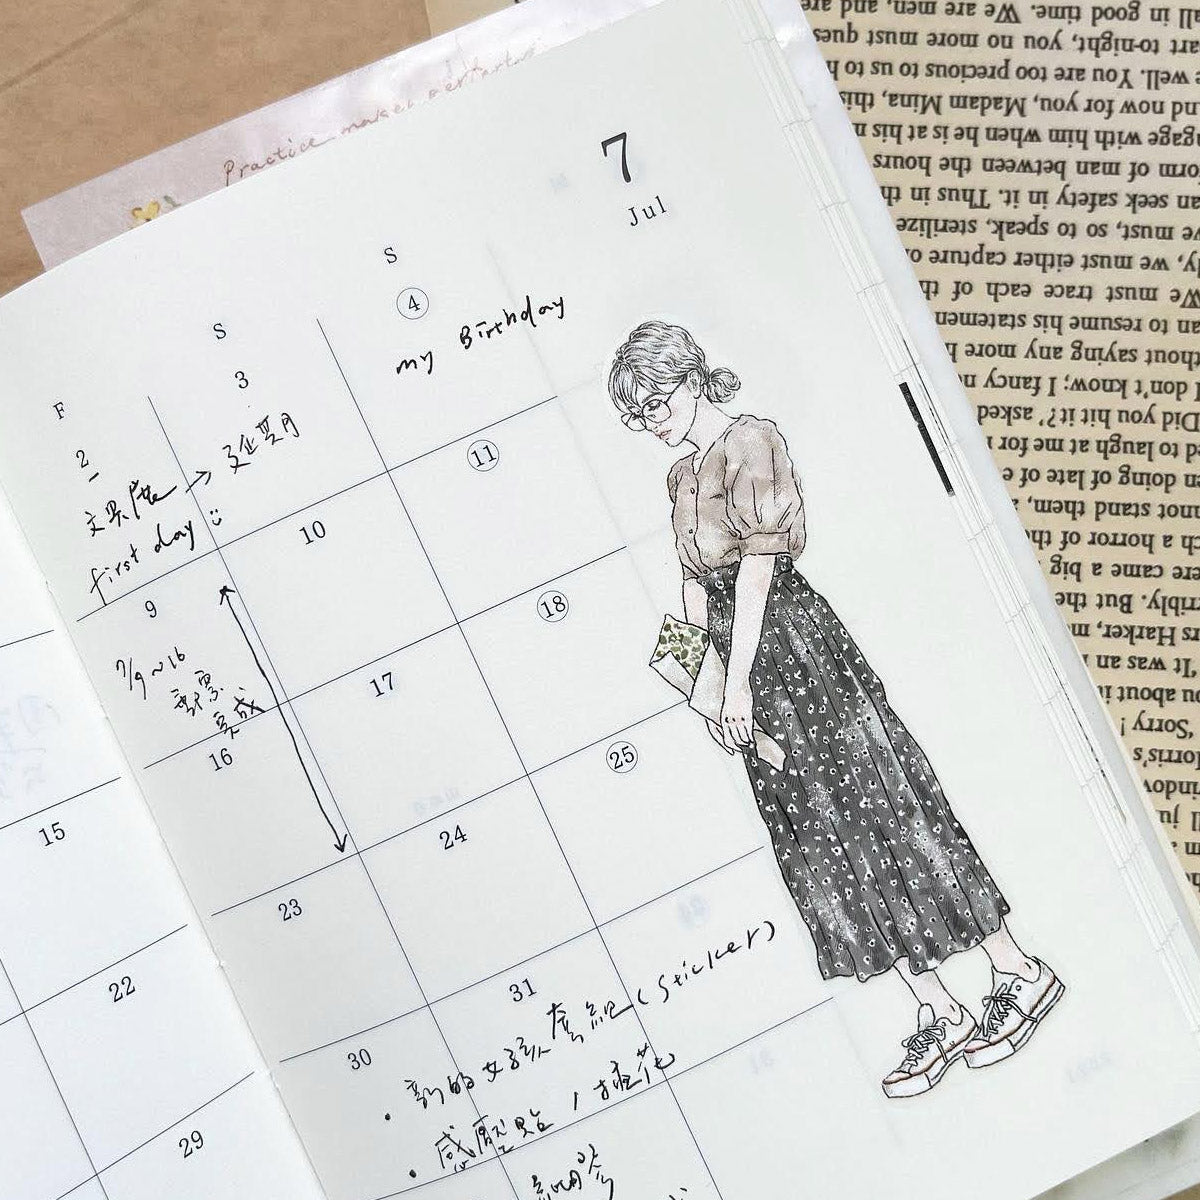 Practice makes
7
Jul
F
S
S
2
3
4
my Birthday
first day :)
9
10
11
7/9~16
郵票
完成
16
17
18
15
23
24
25
22
30
31
29
• 新的女孩套組 (sticker)
• 感壓貼 /
all in good time. We are men, and are
art to-night, you no more must ques
e well. You are too precious to us to h
nd now for you, Madam Mina, this
ngage with him when he is at his n
orm of man between the hours
an seek safety in it. Thus in th
ve must, so to speak, sterilize
ly, we must either capture or
We must trace each of th
an to resume his statemen
thout saying any more h
I don't know; I fancy n
Did you hit it?' asked
ed to laugh at me for
en doing of late of e
nnot stand them,
ch a horror of the
ere came a big
rribly. But the
rs Harker, m
'It was an
ou about i
'Sorry!
Morris's
window
ll ju